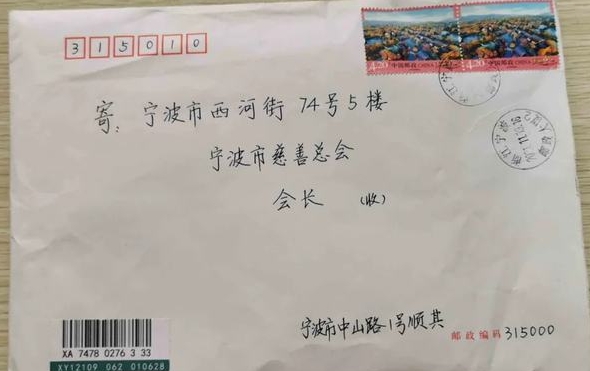 315010
4.20 中国邮政 CHINA
4.20 中国邮政 CHINA
寄: 宁波市西河街74号5楼
宁波市慈善总会
会长 (收)
宁波市中山路1号顺其
邮政编码 315000
XA 7478 0276 3 33
XY12109 062 010628